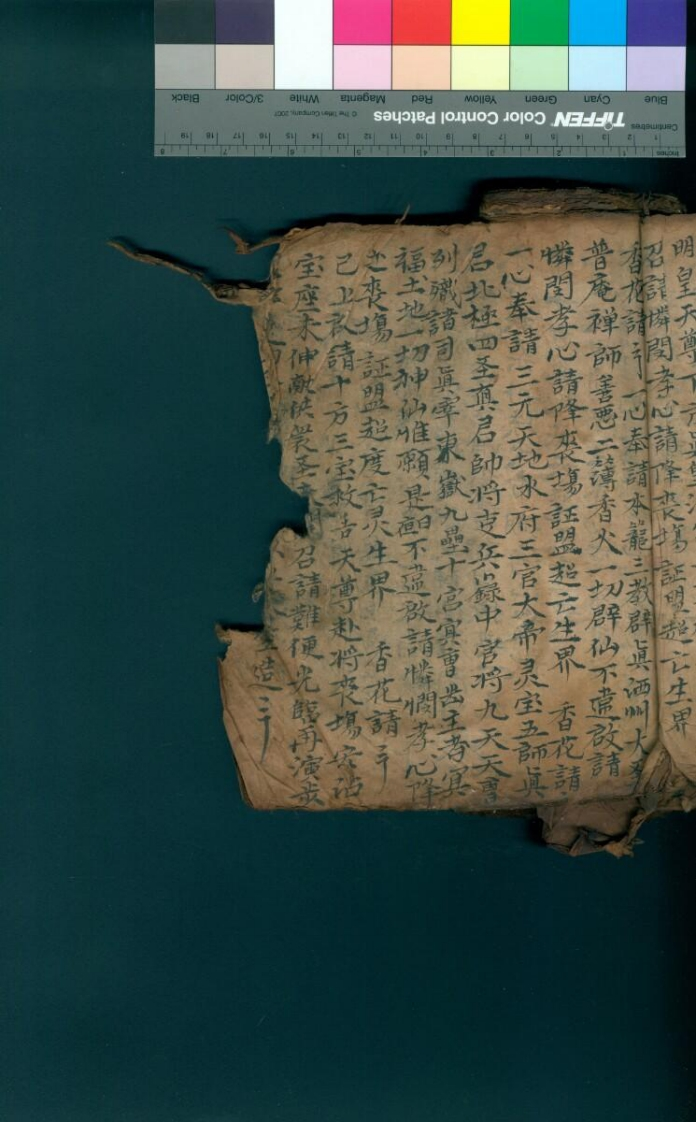 明皇天尊
召請憐閔孝心請降喪塲証明超亡生界
香花請 一心奉請本龕三教群真泗州大
普庵禅師善惡二簿香火一切群仙不遑啟請
憐閔孝心請降喪塲証盟超亡生界 香花請
一心奉請 三元天地水府三官大帝灵宝五師真
君北極四圣真君帥将吏兵籙中官将九天天曹
列職諸司真宰東嶽九壘十宫冥曹岳主者冥
福土地一切神仙惟願是日不遑啟請憐憫孝心降
赴喪塲証盟超度亡灵生界 香花請
已上啟請十方三宝救苦天尊赴将喪塲安沾
宝座未伸献供
召請難便光臨再演步
造
TIFFEN Color Control Patches
© The Tiffen Company, 2007
Blue Cyan Green Yellow Red Magenta White 3/Color Black
Centimetres
Inches
1 2 3 4 5 6 7 8 9 10 11 12 13 14 15 16 17 18 19
1 2 3 4 5 6 7 8